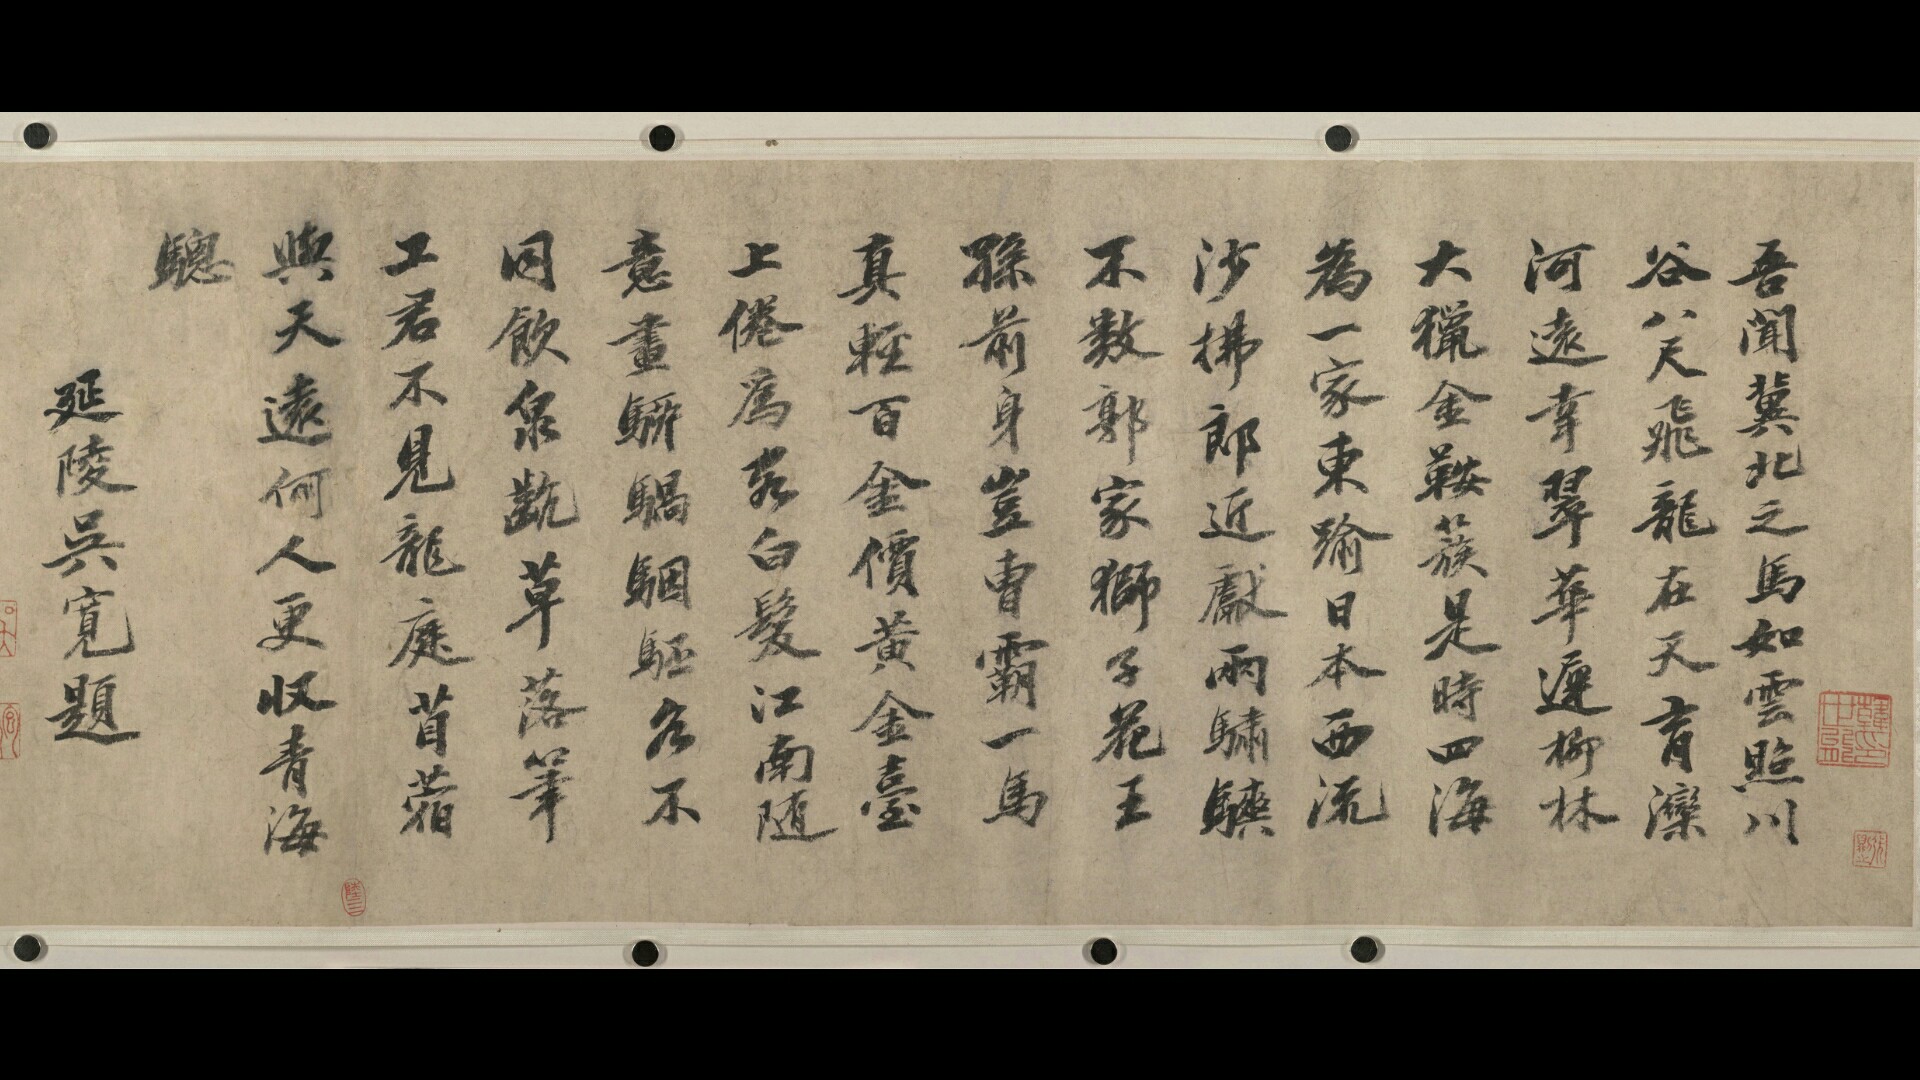 吾聞冀北之馬如雲照川
谷八尺飛龍在天育灤
河遠幸翠華遲柳林
大獵金鞍簇是時四海
為一家東踰日本西流
沙拂郎近獻兩驌驦
不數郭家獅子花王
孫前身豈曹霸一馬
真輕百金價黃金臺
上倦為客白髮江南隨
意畫騂騧駰駓各不
同飲泉齕草落筆
工君不見龍庭苜蓿
與天遠何人更收青海
驄
延陵吳寬題